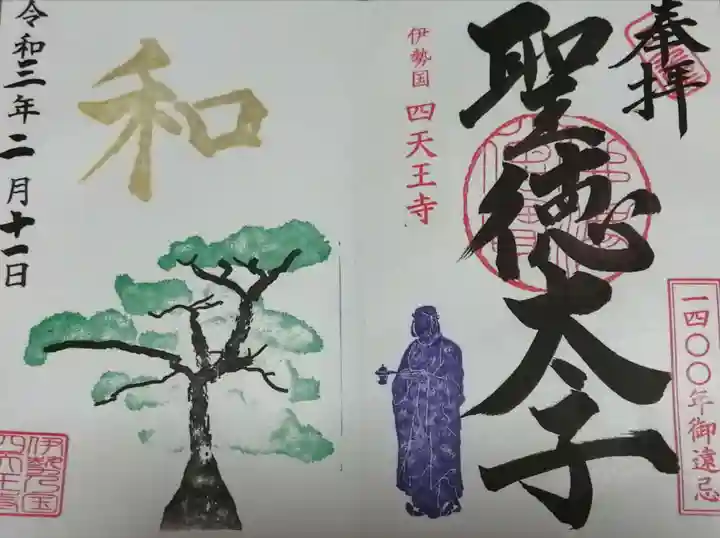 奉拝
聖徳太子
一四〇〇年御遠忌
伊勢国 四天王寺
和
令和三年二月十一日
伊勢乃国
四天王寺